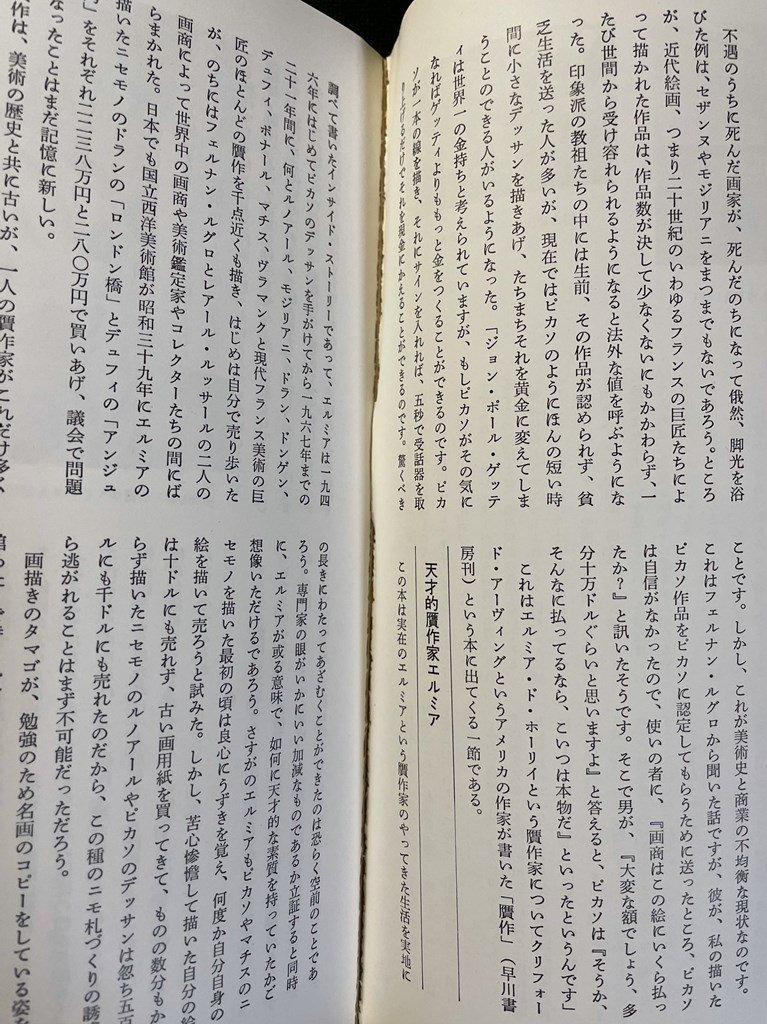 不遇のうちに死んだ画家が、死んだのちになって俄然、脚光を浴
びた例は、セザンヌやモジリアニをまつまでもないであろう。ところ
が、近代絵画、つまり二十世紀のいわゆるフランスの巨匠たちによ
って描かれた作品は、作品数が決して少なくないにもかかわらず、一
たび世間から受け容れられるようになると法外な値を呼ぶようにな
った。印象派の教祖たちの中には生前、その作品が認められず、貧
乏生活を送った人が多いが、現在ではピカソのようにほんの短い時
間に小さなデッサンを描きあげ、たちまちそれを黄金に変えてしま
うことのできる人がいるようになった。「ジョン・ポール・ゲッテ
ィは世界一の金持ちと考えられていますが、もしピカソがその気に
なればゲッティよりももっと金をつくることができるのです。ピカ
ソが一本の線を描き、それにサインを入れれば、五秒で受話器を取
り上げるだけでそれを現金にかえることができるのです。驚くべき
ことです。しかし、これが美術史と商業の不均衡な現状なのです。
これはフェルナン・ルグロから聞いた話ですが、彼が、私の描いた
ピカソ作品をピカソに認定してもらうために送ったところ、ピカソ
は自信がなかったので、使いの者に、『画商はこの絵にいくら払っ
たか？』と訊いたそうです。そこで男が、『大変な額でしょう、多
分十万ドルぐらいと思いますよ』と答えると、ピカソは『そうか、
そんなに払ってるなら、こいつは本物だ』といったというんです」
これはエルミア・ド・ホーリイという贋作家についてクリフォー
ド・アーヴィングというアメリカの作家が書いた「贋作」（早川書
房刊）という本に出てくる一節である。
天才的贋作家エルミア
この本は実在のエルミアという贋作家のやってきた生活を実地に
調べて書いたインサイド・ストーリーであって、エルミアは一九四
六年にはじめてピカソのデッサンを手がけてから一九六七年までの
二十一年間に、何とルノアール、モジリアニ、ドラン、ドンゲン、
デュフィ、ボナール、マチス、ヴラマンクと現代フランス美術の巨
匠のほとんどの贋作を千点近くも描き、はじめは自分で売り歩いた
が、のちにはフェルナン・ルグロとレアール・ルッサールの二人の
画商によって世界中の画商や美術鑑定家やコレクターたちの間にば
らまかれた。日本でも国立西洋美術館が昭和三十九年にエルミアの
描いたニセモノのドランの「ロンドン橋」とデュフィの「アンジュ
」をそれぞれ二二三八万円と二八〇万円で買いあげ、議会で問題
なったことはまだ記憶に新しい。
作は、美術の歴史と共に古いが、一人の贋作家がこれだけ多く、
の長きにわたってあざむくことができたのは恐らく空前のことであ
ろう。専門家の眼がいかにいい加減なものであるか立証すると同時
に、エルミアが或る意味で、如何に天才的な素質を持っていたかご
想像いただけるであろう。さすがのエルミアもピカソやマチスのニ
セモノを描いた最初の頃は良心にうずきを覚え、何度か自分自身の
絵を描いて売ろうと試みた。しかし、苦心惨憺して描いた自分の絵
は十ドルにも売れず、古い画用紙を買ってきて、ものの数分もか
らず描いたニセモノのルノアールやピカソのデッサンは忽ち五百
ルにも千ドルにも売れたのだから、この種のニモ札づくりの誘
ら逃がれることはまず不可能だっただろう。
画描きのタマゴが、勉強のため名画のコピーをしている姿を